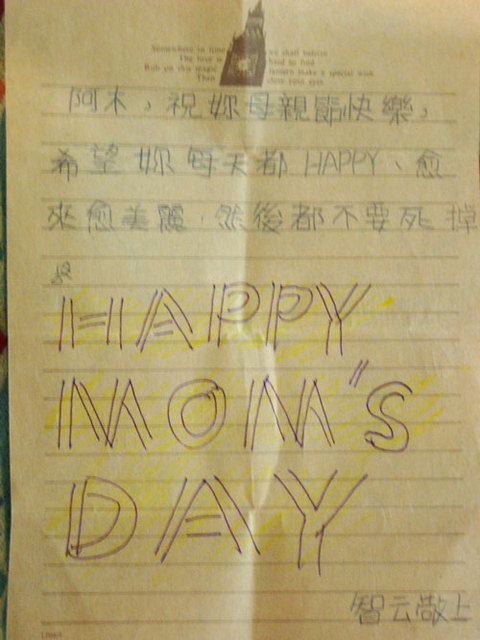 Somewhere in time we shall believe
The love is hard to find
Rub on this magic lantern make a special wish
Then close your eyes
阿木，祝妳母親節快樂，
希望妳每天都 HAPPY、愈
來愈美麗，然後都不要死掉
HAPPY
MOM'S
DAY
智云敬上